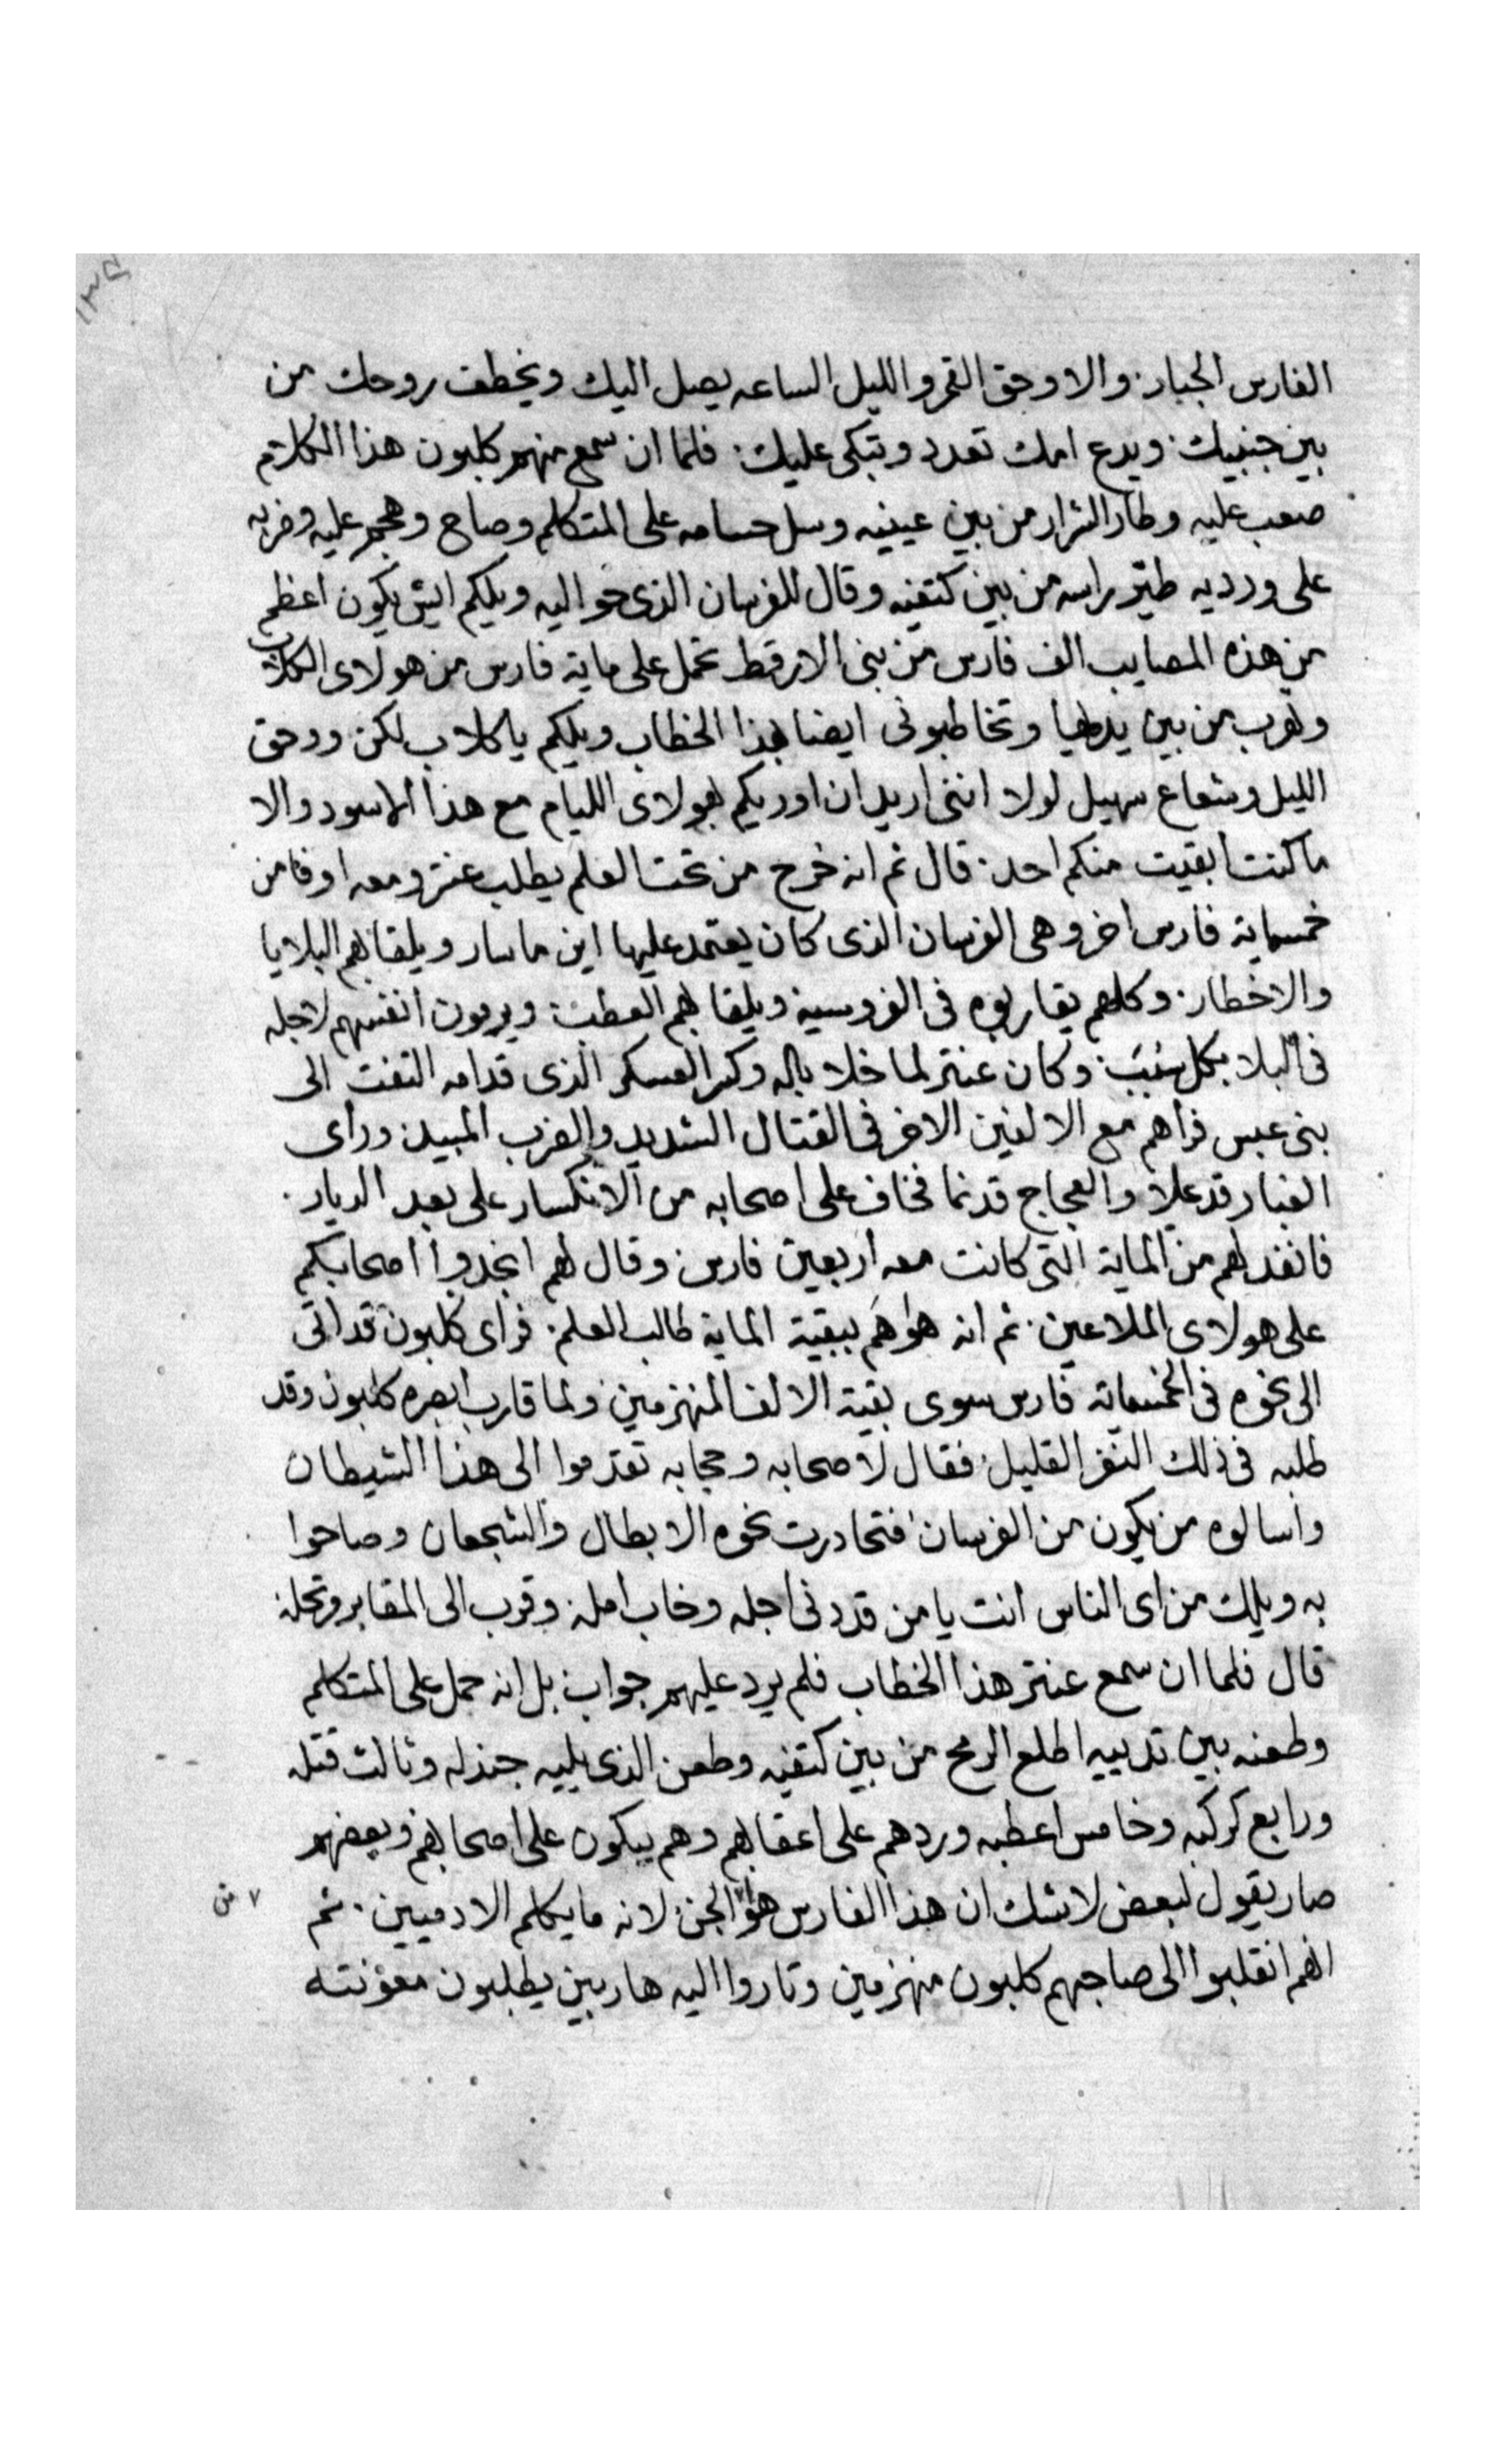 ١٣٥
الفارس الجبار والا وحق القمر والليل الساعه يصل اليك ويخطف روحك من
بين جنبيك ويدع امك تعدد وتبكى عليك فلما ان سمع منهم كلبون هذا الكلام
صعب عليه وطار الشرار من بين عينيه وسل حسامه على المتكلم وصاح وهجم عليه وضربه
على ورديه طير راسه من بين كتفيه وقال للفرسان الذى حواليه ويلكم ايش يكون اعظم
من هذه المصايب الف فارس من بنى الارقط تحمل على ماية فارس من هولاى الكلاب
وتهرب من بين يديها وتخاطبونى ايضا بهذا الخطاب ويلكم يا كلاب لكن ووحق
الليل وشعاع سهيل لولا اننى اريد ان اوريكم بهولاى الليام مع هذا الاسود والا
ما كنت ابقيت منكم احد قال ثم انه خرج من تحت العلم يطلب عنتر ومعه اوفا من
خمسماية فارس اخر وهى الفرسان الذى كان يعتمد عليها اين ما سار ويلقا بهم البلايا
والاخطار وكلهم يقاربوه فى الفروسية ويلقا بهم العطب ويرمون انفسهم لاجله
فى البلا بكل سبب وكان عنتر لما خلا باله وكسر العسكر الذى قدامه التفت الى
بنى عبس فراهم مع الالفين الاخر فى القتال الشديد والضرب المبيد وراى
الغبار قد علا والعجاج قد نما فخاف على اصحابه من الانكسار على بعد الديار
فانفد لهم من الماية التى كانت معه اربعين فارس وقال لهم انجدوا اصحابكم
على هولاى الملاعين ثم انه هو هم ببقية الماية طالب العلم فراى كلبون قد اتى
الى نحوه فى الخمسماية فارس سوى بقية الالف المنهزمين ولما قارب ابصره كلبون وقد
طلبه فى ذلك النفر القليل فقال لاصحابه وحجابه تقدموا الى هذا الشيطان
واسالوه من يكون من الفرسان فتحادرت نحوه الابطال والشجعان وصاحوا
به ويلك من اى الناس انت يا من قد دنى اجله وخاب امله وقرب الى المقابر وتحله
قال فلما ان سمع عنتر هذا الخطاب فلم يرد عليهم جواب بل انه حمل على المتكلم
وطعنه بين تدييه اطلع الرمح من بين كتفيه وطعن الذى يليه جندله وثالث قتله
ورابع كركبه وخامس اعطبه وردهم على اعقابهم وهم يبكون على اصحابهم وبعضهم
صار يقول لبعض لاشك ان هذا الفارس هو الجن لانه ما يكلم الادميين ثم
٧ من
انهم انقلبوا الى صاحبهم كلبون منهزمين وتاروا اليه هاربين يطلبون معونته